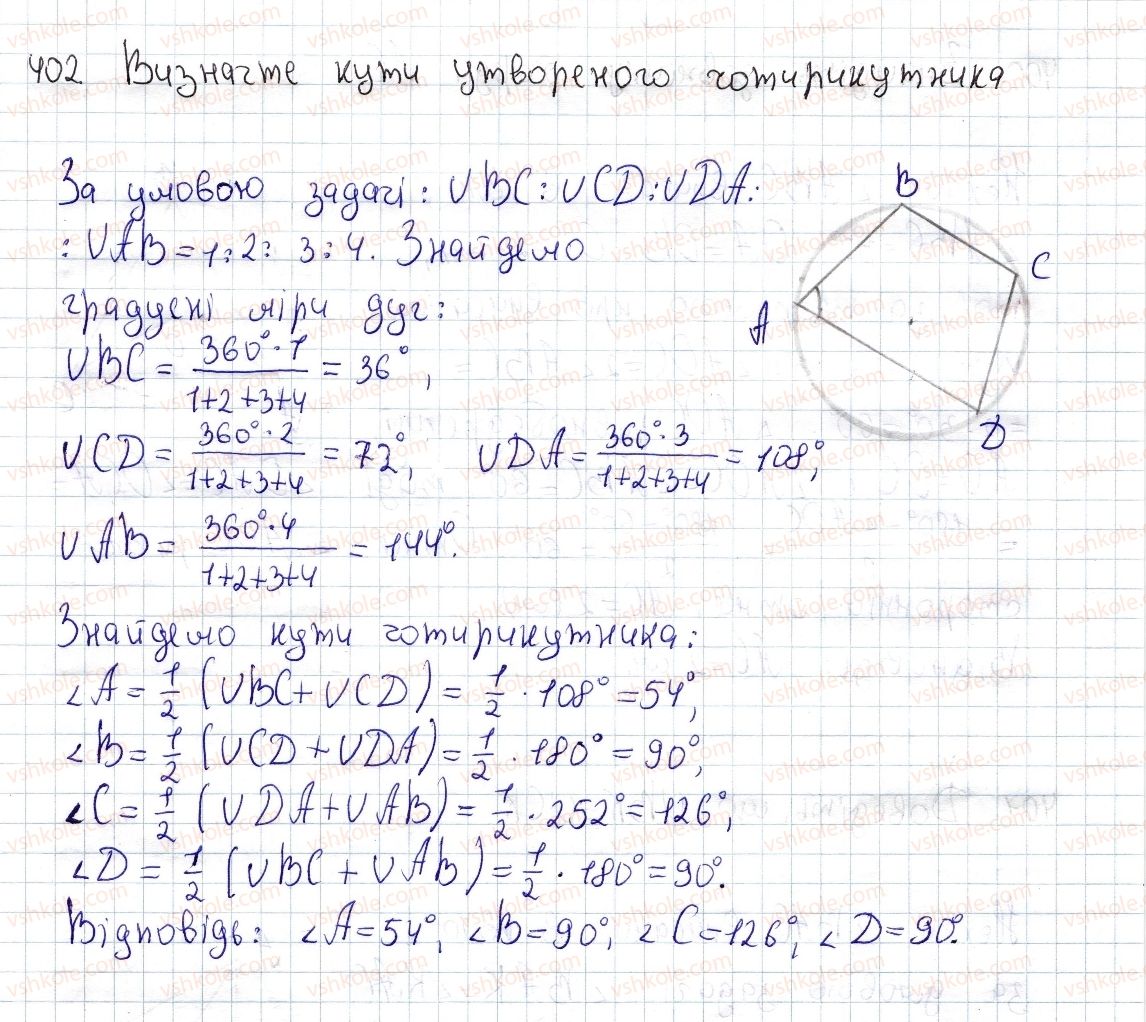 402 Визначте кути утвореного чотирикутника
За умовою задачі: ∪BC:∪CD:∪DA:
:∪AB=1:2:3:4. Знайдемо
градусні міри дуг:
∪BC = 360°·1 / 1+2+3+4 = 36°,
∪CD = 360°·2 / 1+2+3+4 = 72°, ∪DA = 360°·3 / 1+2+3+4 = 108°,
∪AB = 360°·4 / 1+2+3+4 = 144°.
Знайдемо кути чотирикутника:
∠A = 1/2 (∪BC+∪CD) = 1/2 · 108° = 54°,
∠B = 1/2 (∪CD+∪DA) = 1/2 · 180° = 90°,
∠C = 1/2 (∪DA+∪AB) = 1/2 · 252° = 126°,
∠D = 1/2 (∪BC+∪AB) = 1/2 · 180° = 90°.
Відповідь: ∠A=54°, ∠B=90°, ∠C=126°, ∠D=90°.
B
C
A
D
vshkole.com